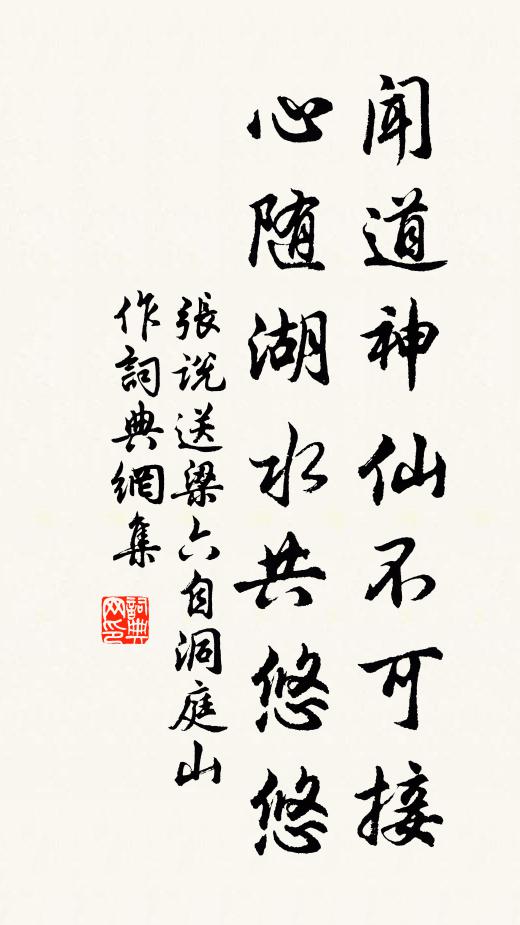 闻道神仙不可接
心随湖水共悠悠
張说送梁六自洞庭山
作詞典網集
詞典网印